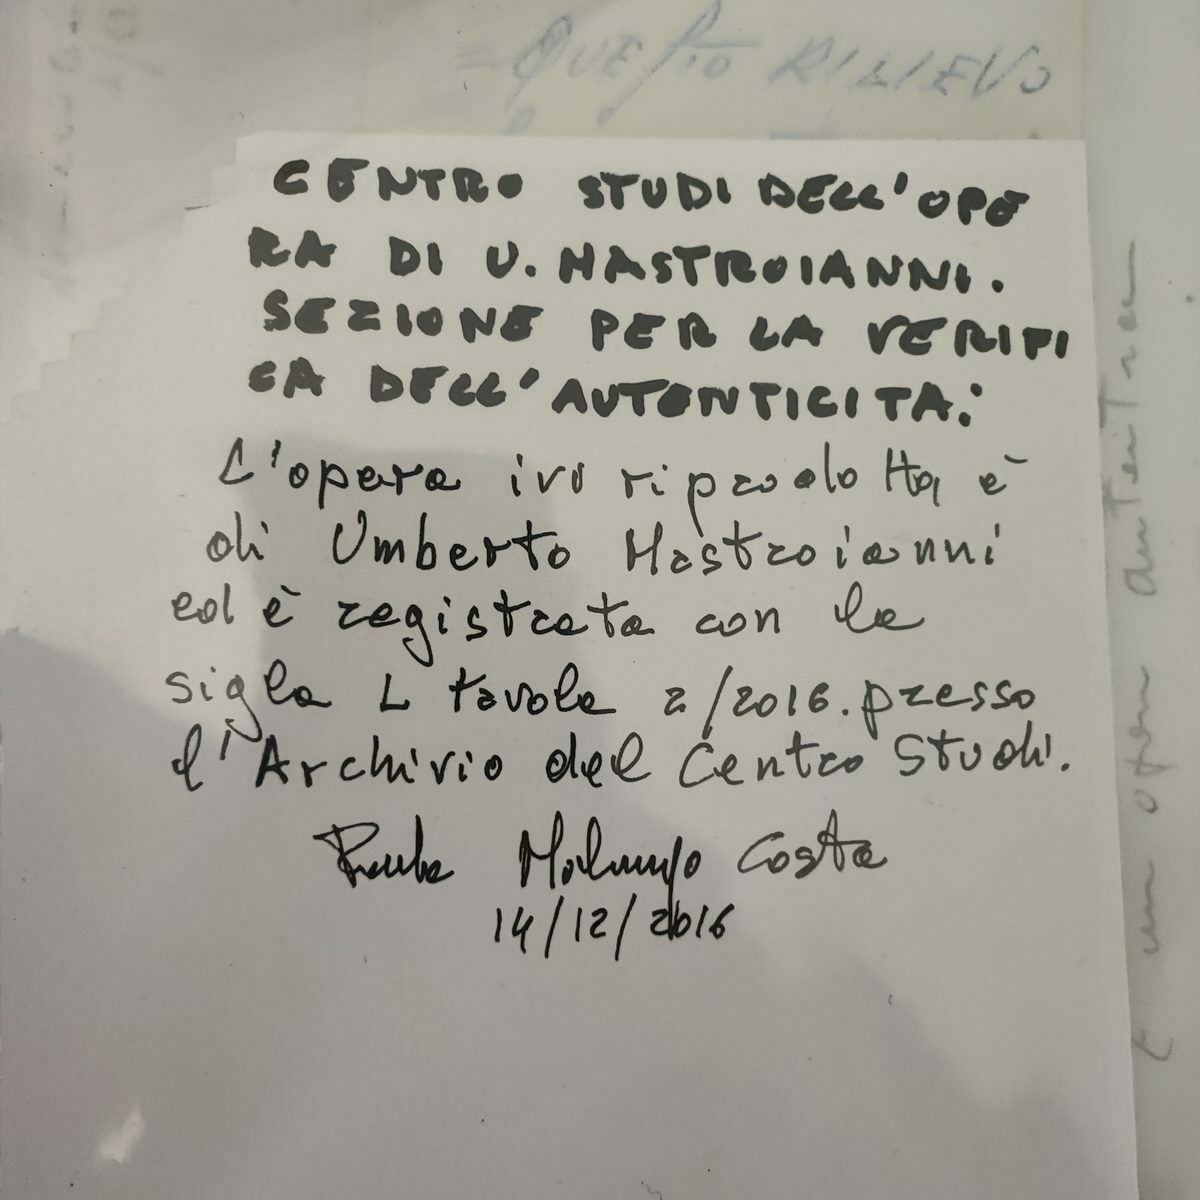 = QUESTO RILIEVO
CENTRO STUDI DELL'OPE
RA DI U. MASTROIANNI.
SEZIONE PER LA VERIFI
CA DELL'AUTENTICITA:
L'opera ivi riprodotta è
di Umberto Mastroianni
ed è registrata con la
sigla L tavola 2/2016. presso
l'Archivio del Centro Studi.
Costa
14/12/2016
È un opera autentica